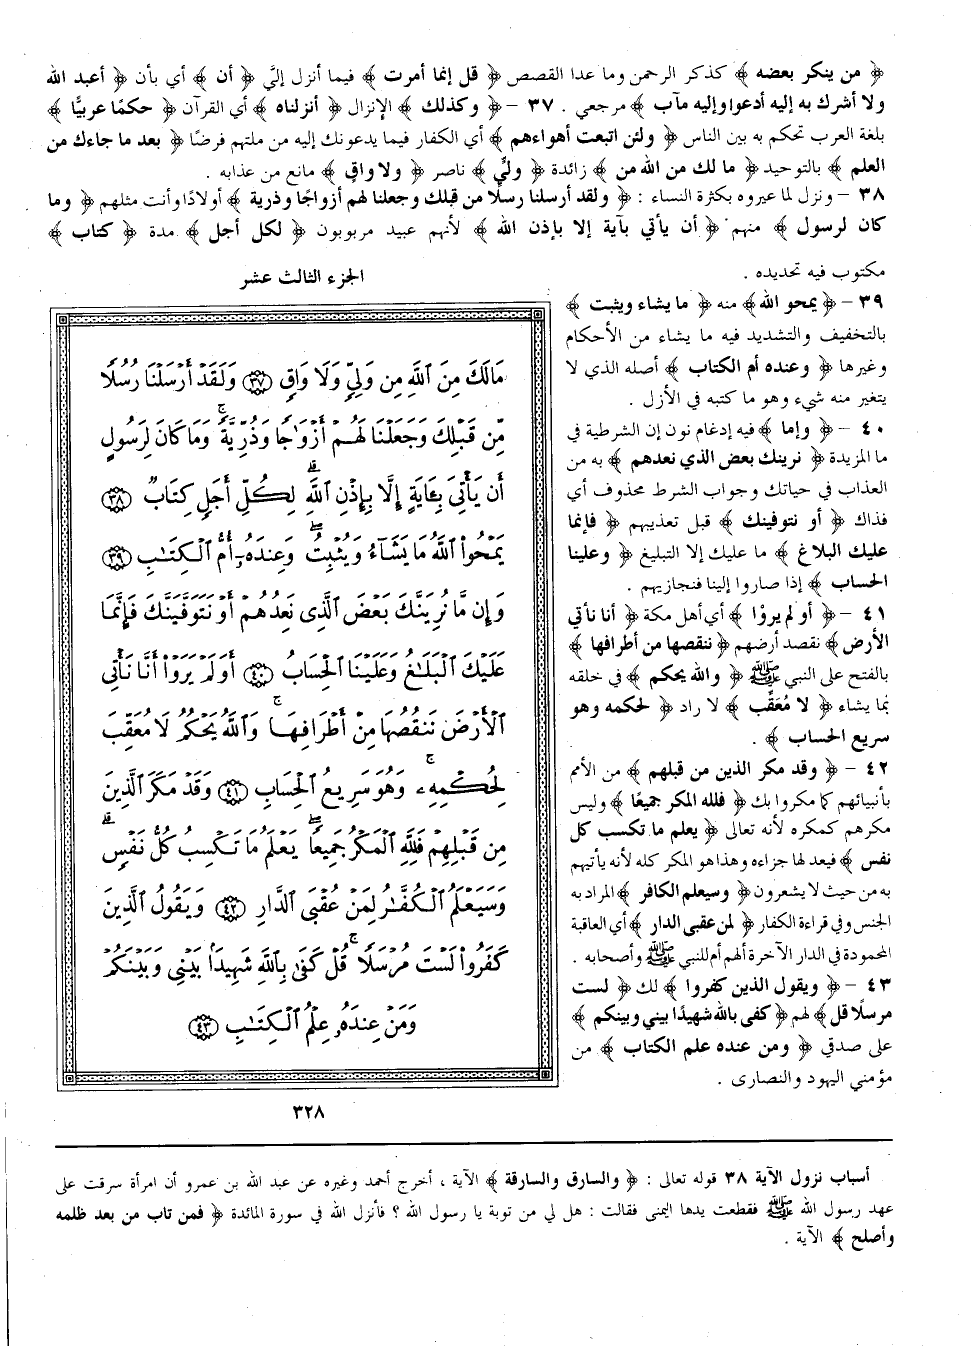 ﴿ من ينكر بعضه ﴾ كذكر الرحمن وما عدا القصص ﴿ قل إنما أمرت ﴾ فيما أنزل إليَّ ﴿ أن ﴾ أي بأن ﴿ أعبد الله
ولا أشرك به إليه أدعوا وإليه مآب ﴾ مرجعي . ٣٧ - ﴿ وكذلك ﴾ الإنزال ﴿ أنزلناه ﴾ أي القرآن ﴿ حكمًا عربيًّا ﴾
بلغة العرب تحكم به بين الناس ﴿ ولئن اتبعت أهواءهم ﴾ أي الكفار فيما يدعونك إليه من ملتهم فرضًا ﴿ بعد ما جاءك من
العلم ﴾ بالتوحيد ﴿ ما لك من الله من ﴾ زائدة ﴿ وليّ ﴾ ناصر ﴿ ولا واقٍ ﴾ مانع من عذابه .
٣٨ - ونزل لما عيروه بكثرة النساء : ﴿ ولقد أرسلنا رسلًا من قبلك وجعلنا لهم أزواجًا وذرية ﴾ أولادًا وأنت مثلهم ﴿ وما
كان لرسول ﴾ منهم ﴿ أن يأتي بآية إلا بإذن الله ﴾ لأنهم عبيد مربوبون ﴿ لكل أجل ﴾ مدة ﴿ كتاب ﴾
مكتوب فيه تحديده .
٣٩ - ﴿ يمحو الله ﴾ منه ﴿ ما يشاء ويثبت ﴾
بالتخفيف والتشديد فيه ما يشاء من الأحكام
وغيرها ﴿ وعنده أم الكتاب ﴾ أصله الذي لا
يتغير منه شيء وهو ما كتبه في الأزل .
٤٠ - ﴿ وإما ﴾ فيه إدغام نون إن الشرطية في
ما المزيدة ﴿ نرينك بعض الذي نعدهم ﴾ به من
العذاب في حياتك وجواب الشرط محذوف أي
فذاك ﴿ أو نتوفينك ﴾ قبل تعذيبهم ﴿ فإنما
عليك البلاغ ﴾ ما عليك إلا التبليغ ﴿ وعلينا
الحساب ﴾ إذا صاروا إلينا فنجازيهم .
٤١ - ﴿ أو لم يروْا ﴾ أي أهل مكة ﴿ أنا نأتي
الأرض ﴾ نقصد أرضهم ﴿ ننقصها من أطرافها ﴾
بالفتح على النبي ﷺ ﴿ والله يحكم ﴾ في خلقه
بما يشاء ﴿ لا مُعَقِّب ﴾ لا راد ﴿ لحكمه وهو
سريع الحساب ﴾ .
٤٢ - ﴿ وقد مكر الذين من قبلهم ﴾ من الأمم
بأنبيائهم كما مكروا بك ﴿ فلله المكر جميعًا ﴾ وليس
مكرهم كمكره لأنه تعالى ﴿ يعلم ما تكسب كل
نفس ﴾ فيعد لها جزاءه وهذا هو المكر كله لأنه يأتيهم
به من حيث لا يشعرون ﴿ وسيعلم الكافر ﴾ المراد به
الجنس وفي قراءة الكفار ﴿ لمن عقبى الدار ﴾ أي العاقبة
المحمودة في الدار الآخرة ألهم أم للنبي ﷺ وأصحابه .
٤٣ - ﴿ ويقول الذين كفروا ﴾ لك ﴿ لست
مرسلًا قل ﴾ لهم ﴿ كفى بالله شهيدًا بيني وبينكم ﴾
على صدقي ﴿ ومن عنده علم الكتاب ﴾ من
مؤمني اليهود والنصارى .
الجزء الثالث عشر
مَالَكَ مِنَ ٱللَّهِ مِن وَلِيٍّ وَلَا وَاقٍ ٣٧ وَلَقَدْ أَرْسَلْنَا رُسُلًا
مِّن قَبْلِكَ وَجَعَلْنَا لَهُمْ أَزْوَٰجًا وَذُرِّيَّةً ۚ وَمَا كَانَ لِرَسُولٍ
أَن يَأْتِىَ بِـَٔايَةٍ إِلَّا بِإِذْنِ ٱللَّهِ ۗ لِكُلِّ أَجَلٍ كِتَابٌ ٣٨
يَمْحُوا۟ ٱللَّهُ مَا يَشَآءُ وَيُثْبِتُ ۖ وَعِندَهُۥٓ أُمُّ ٱلْكِتَٰبِ ٣٩
وَإِن مَّا نُرِيَنَّكَ بَعْضَ ٱلَّذِى نَعِدُهُمْ أَوْ نَتَوَفَّيَنَّكَ فَإِنَّمَا
عَلَيْكَ ٱلْبَلَٰغُ وَعَلَيْنَا ٱلْحِسَابُ ٤٠ أَوَلَمْ يَرَوْا۟ أَنَّا نَأْتِى
ٱلْأَرْضَ نَنقُصُهَا مِنْ أَطْرَافِهَا ۚ وَٱللَّهُ يَحْكُمُ لَا مُعَقِّبَ
لِحُكْمِهِۦ ۚ وَهُوَ سَرِيعُ ٱلْحِسَابِ ٤١ وَقَدْ مَكَرَ ٱلَّذِينَ
مِن قَبْلِهِمْ فَلِلَّهِ ٱلْمَكْرُ جَمِيعًا ۖ يَعْلَمُ مَا تَكْسِبُ كُلُّ نَفْسٍ ۗ
وَسَيَعْلَمُ ٱلْكُفَّٰرُ لِمَنْ عُقْبَى ٱلدَّارِ ٤٢ وَيَقُولُ ٱلَّذِينَ
كَفَرُوا۟ لَسْتَ مُرْسَلًا ۚ قُلْ كَفَىٰ بِٱللَّهِ شَهِيدًۢا بَيْنِى وَبَيْنَكُمْ
وَمَنْ عِندَهُۥ عِلْمُ ٱلْكِتَٰبِ ٤٣
٣٢٨
أسباب نزول الآية ٣٨ قوله تعالى : ﴿ والسارق والسارقة ﴾ الآية ، أخرج أحمد وغيره عن عبد الله بن عمرو أن امرأة سرقت على
عهد رسول الله ﷺ فقطعت يدها اليمنى فقالت : هل لي من توبة يا رسول الله ؟ فأنزل الله في سورة المائدة ﴿ فمن تاب من بعد ظلمه
وأصلح ﴾ الآية .